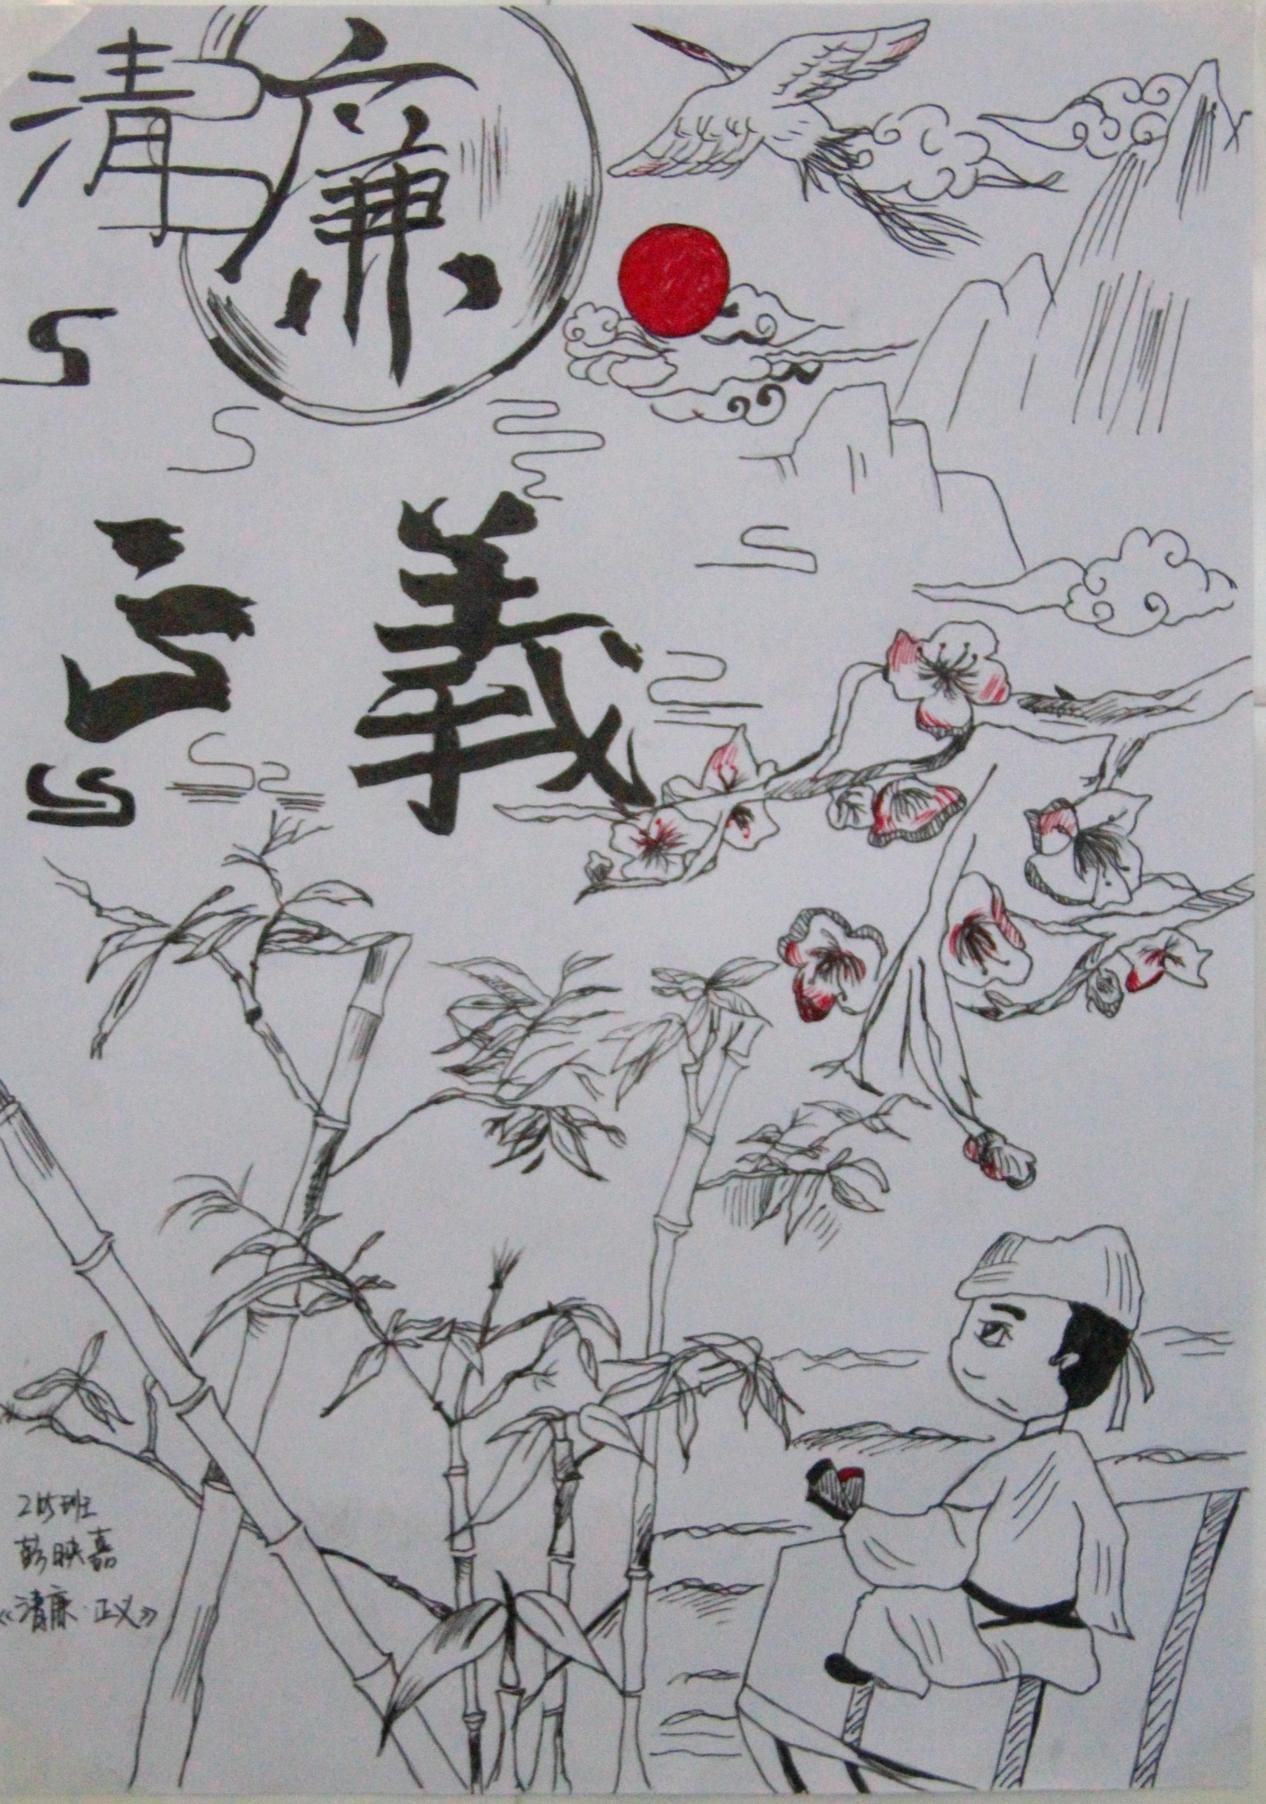 清廉
正義
班
彭映嘉
《清廉·正义》